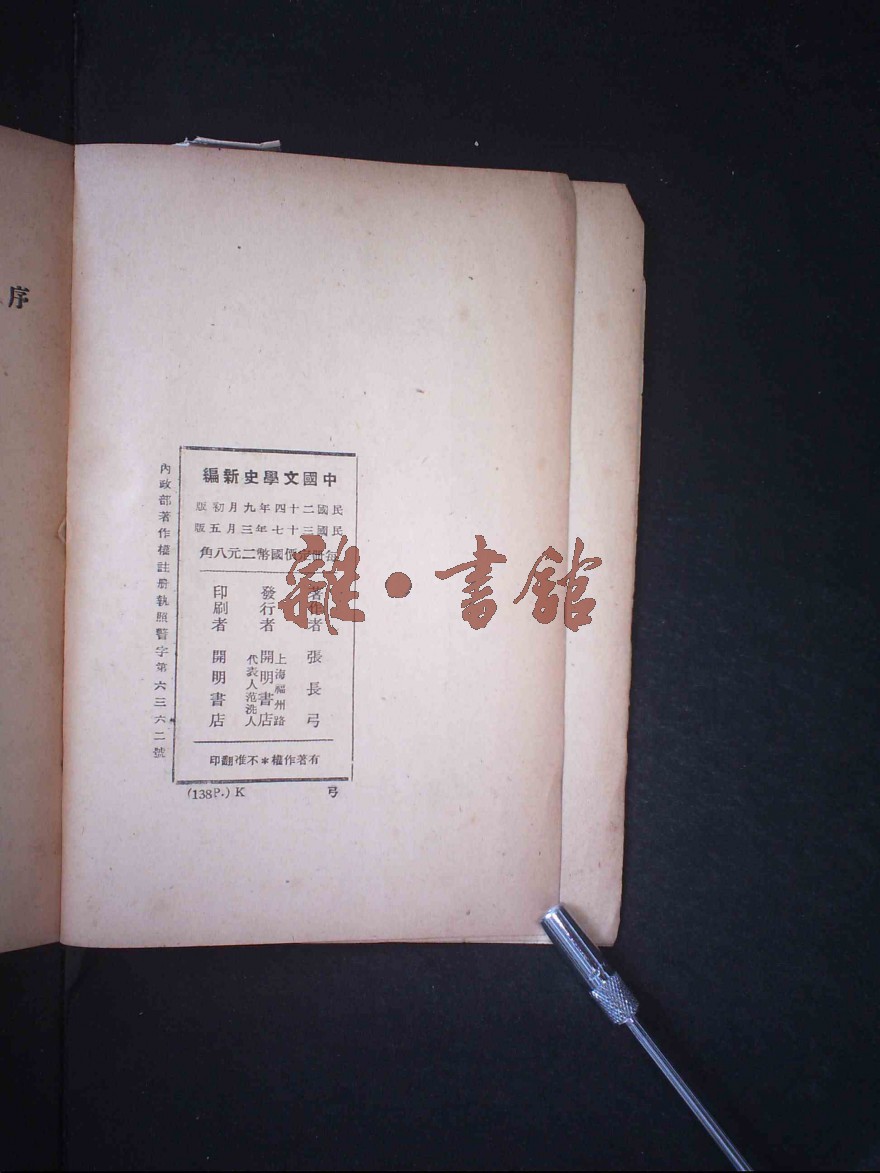 序
中國文學史新編
民國二十四年九月初版
民國三十七年三月五版
每冊定價國幣二元八角
著作者 張長弓
發行者 上海福州路 開明書店 代表人范洗人
印刷者 開明書店
有著作權*不准翻印
內政部著作權註册執照警字第六三六二號
(138P.) K 弓
雜·書館